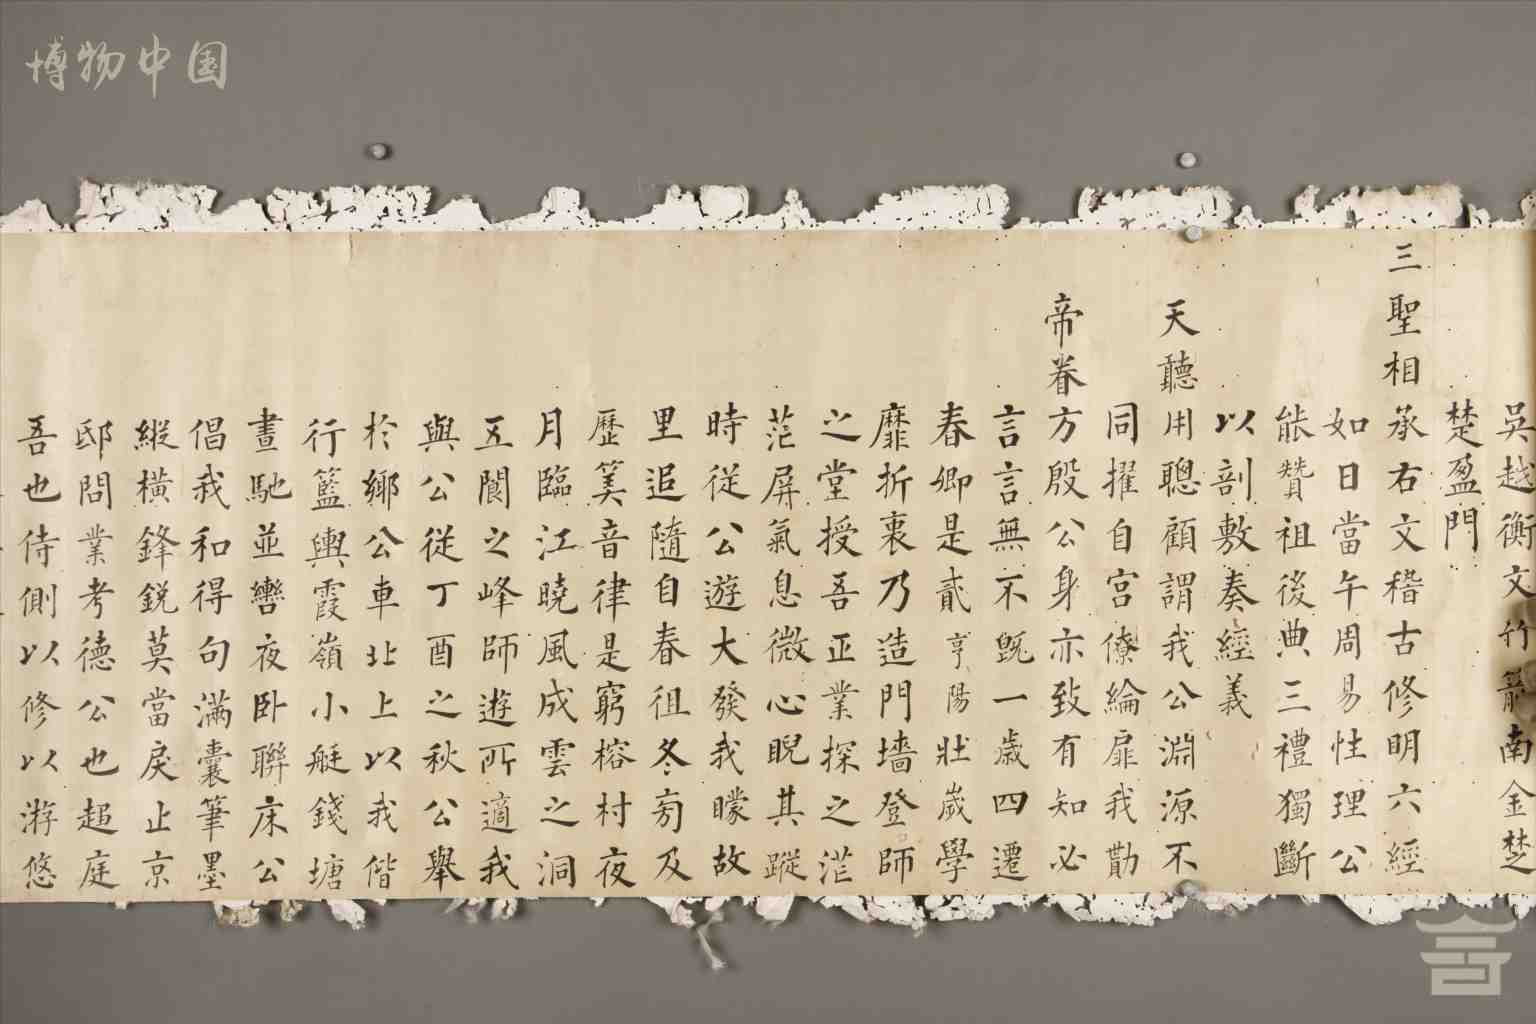 博物中国
吳越衡文竹箭南金楚
楚盈門
三聖相承右文稽古修明六經
如日當午周易性理公
能贊祖後典三禮獨斷
以剖敷奏經義
天聽用聰顧謂我公淵源不
同擢自宮僚綸扉我勩
帝眷方殷公身亦致有知必
言言無不既一歲四遷
春卿是貳亨陽壯歲學
靡折衷乃造門墻登師
之堂授吾正業探之茫
茫屏氣息微心睨其蹤
時從公遊大發我矇故
里追隨自春徂冬旁及
歷筭音律是窮榕村夜
月臨江曉風成雲之洞
五閬之峰師遊所適我
與公從丁酉之秋公舉
於鄉公車北上以我偕
行籃輿霞嶺小艇錢塘
晝馳並轡夜卧聯床公
倡我和得句滿囊筆墨
縱橫鋒銳莫當戾止京
邸問業考德公也趨庭
吾也侍側以修以游悠